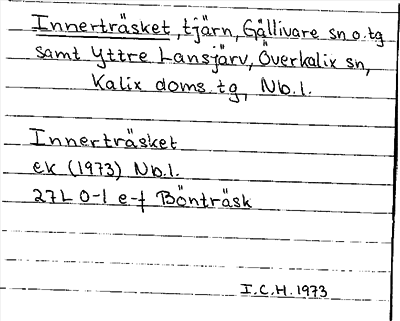 Innerträsket, tjärn, Gällivare sn o. tg
samt Yttre Lansjärv, Överkalix sn,
Kalix doms. tg, Nb.l.
Innerträsket
ek (1973) Nb.l.
27L 0-1 e-f Bönträsk
I.C.H. 1973